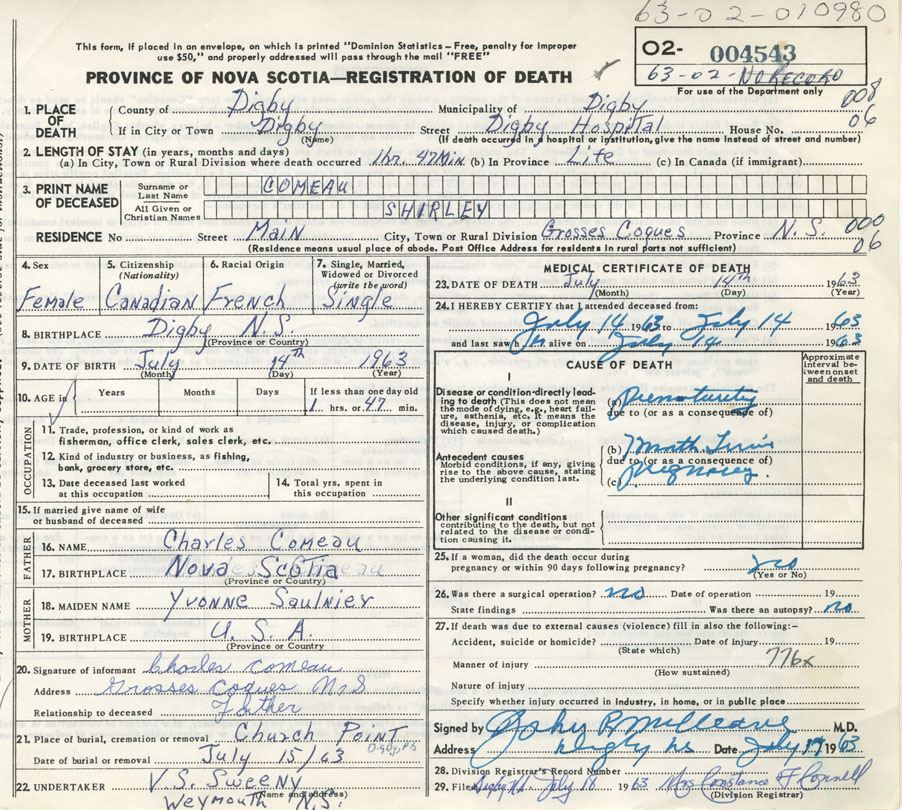 63-02-010980
This form, if placed in an envelope, on which is printed "Dominion Statistics – Free, penalty for improper
use $50," and properly addressed will pass through the mail "FREE"
PROVINCE OF NOVA SCOTIA—REGISTRATION OF DEATH
02- 004543
63-02- NO RECORD
For use of the Department only
008
06
1. PLACE OF DEATH
County of Digby Municipality of Digby
If in City or Town Digby Street Digby Hospital House No.
(Name) (If death occurred in a hospital or institution, give the name instead of street and number)
2. LENGTH OF STAY (in years, months and days)
(a) In City, Town or Rural Division where death occurred 1hr. 47Min (b) In Province Life (c) In Canada (if immigrant)
3. PRINT NAME OF DECEASED
Surname or Last Name COMEAU
All Given or Christian Names SHIRLEY
RESIDENCE No Street Main City, Town or Rural Division Grosses Coques Province N.S. 000
06
(Residence means usual place of abode. Post Office Address for residents in rural parts not sufficient)
4. Sex
Female
5. Citizenship
(Nationality)
Canadian
6. Racial Origin
French
7. Single, Married,
Widowed or Divorced
(write the word)
Single
8. BIRTHPLACE Digby N.S.
(Province or Country)
9. DATE OF BIRTH July 14th 1963
(Month) (Day) (Year)
10. AGE in Years Months Days If less than one day old
1 hrs. or 47 min.
OCCUPATION
11. Trade, profession, or kind of work as
fisherman, office clerk, sales clerk, etc.
12. Kind of industry or business, as fishing,
bank, grocery store, etc.
13. Date deceased last worked
at this occupation
14. Total yrs. spent in
this occupation
15. If married give name of wife
or husband of deceased
FATHER
16. NAME Charles Comeau
17. BIRTHPLACE Nova Scotia
(Province or Country)
MOTHER
18. MAIDEN NAME Yvonne Saulnier
19. BIRTHPLACE U.S.A.
(Province or Country)
20. Signature of informant Charles Comeau
Address Grosses Coques N.S
Relationship to deceased Father
21. Place of burial, cremation or removal Church Point
Date of burial or removal July 15/63
22. UNDERTAKER V.S. Sweeny
(Name and address)
Weymouth N.S.
MEDICAL CERTIFICATE OF DEATH
23. DATE OF DEATH July 14th 1963
(Month) (Day) (Year)
24. I HEREBY CERTIFY that I attended deceased from:
July 14 1963 to July 14 1963
and last saw h alive on July 14 1963
CAUSE OF DEATH
Approximate
interval be-
tween onset
and death
I
Disease or condition directly lead-
ing to death (This does not mean
the mode of dying, e.g., heart fail-
ure, asthenia, etc. It means the
disease, injury, or complication
which caused death.)
(a) Prematurity
due to (or as a consequence of)
Antecedent causes
Morbid conditions, if any, giving
rise to the above cause, stating
the underlying condition last.
(b)
due to (or as a consequence of)
(c) pregnancy.
II
Other significant conditions
contributing to the death, but not
related to the disease or condi-
tion causing it.
25. If a woman, did the death occur during
pregnancy or within 90 days following pregnancy? no
(Yes or No)
26. Was there a surgical operation? no Date of operation 19
State findings Was there an autopsy? no
27. If death was due to external causes (violence) fill in also the following:-
Accident, suicide or homicide? Date of injury 19
(State which)
776x
Manner of injury
(How sustained)
Nature of injury
Specify whether injury occurred in industry, in home, or in public place
Signed by M.D.
Address Date July 1963
28. Division Registrar's Record Number
29. Filed July 18 1963 Mrs Constance F Connell
(Division Registrar)